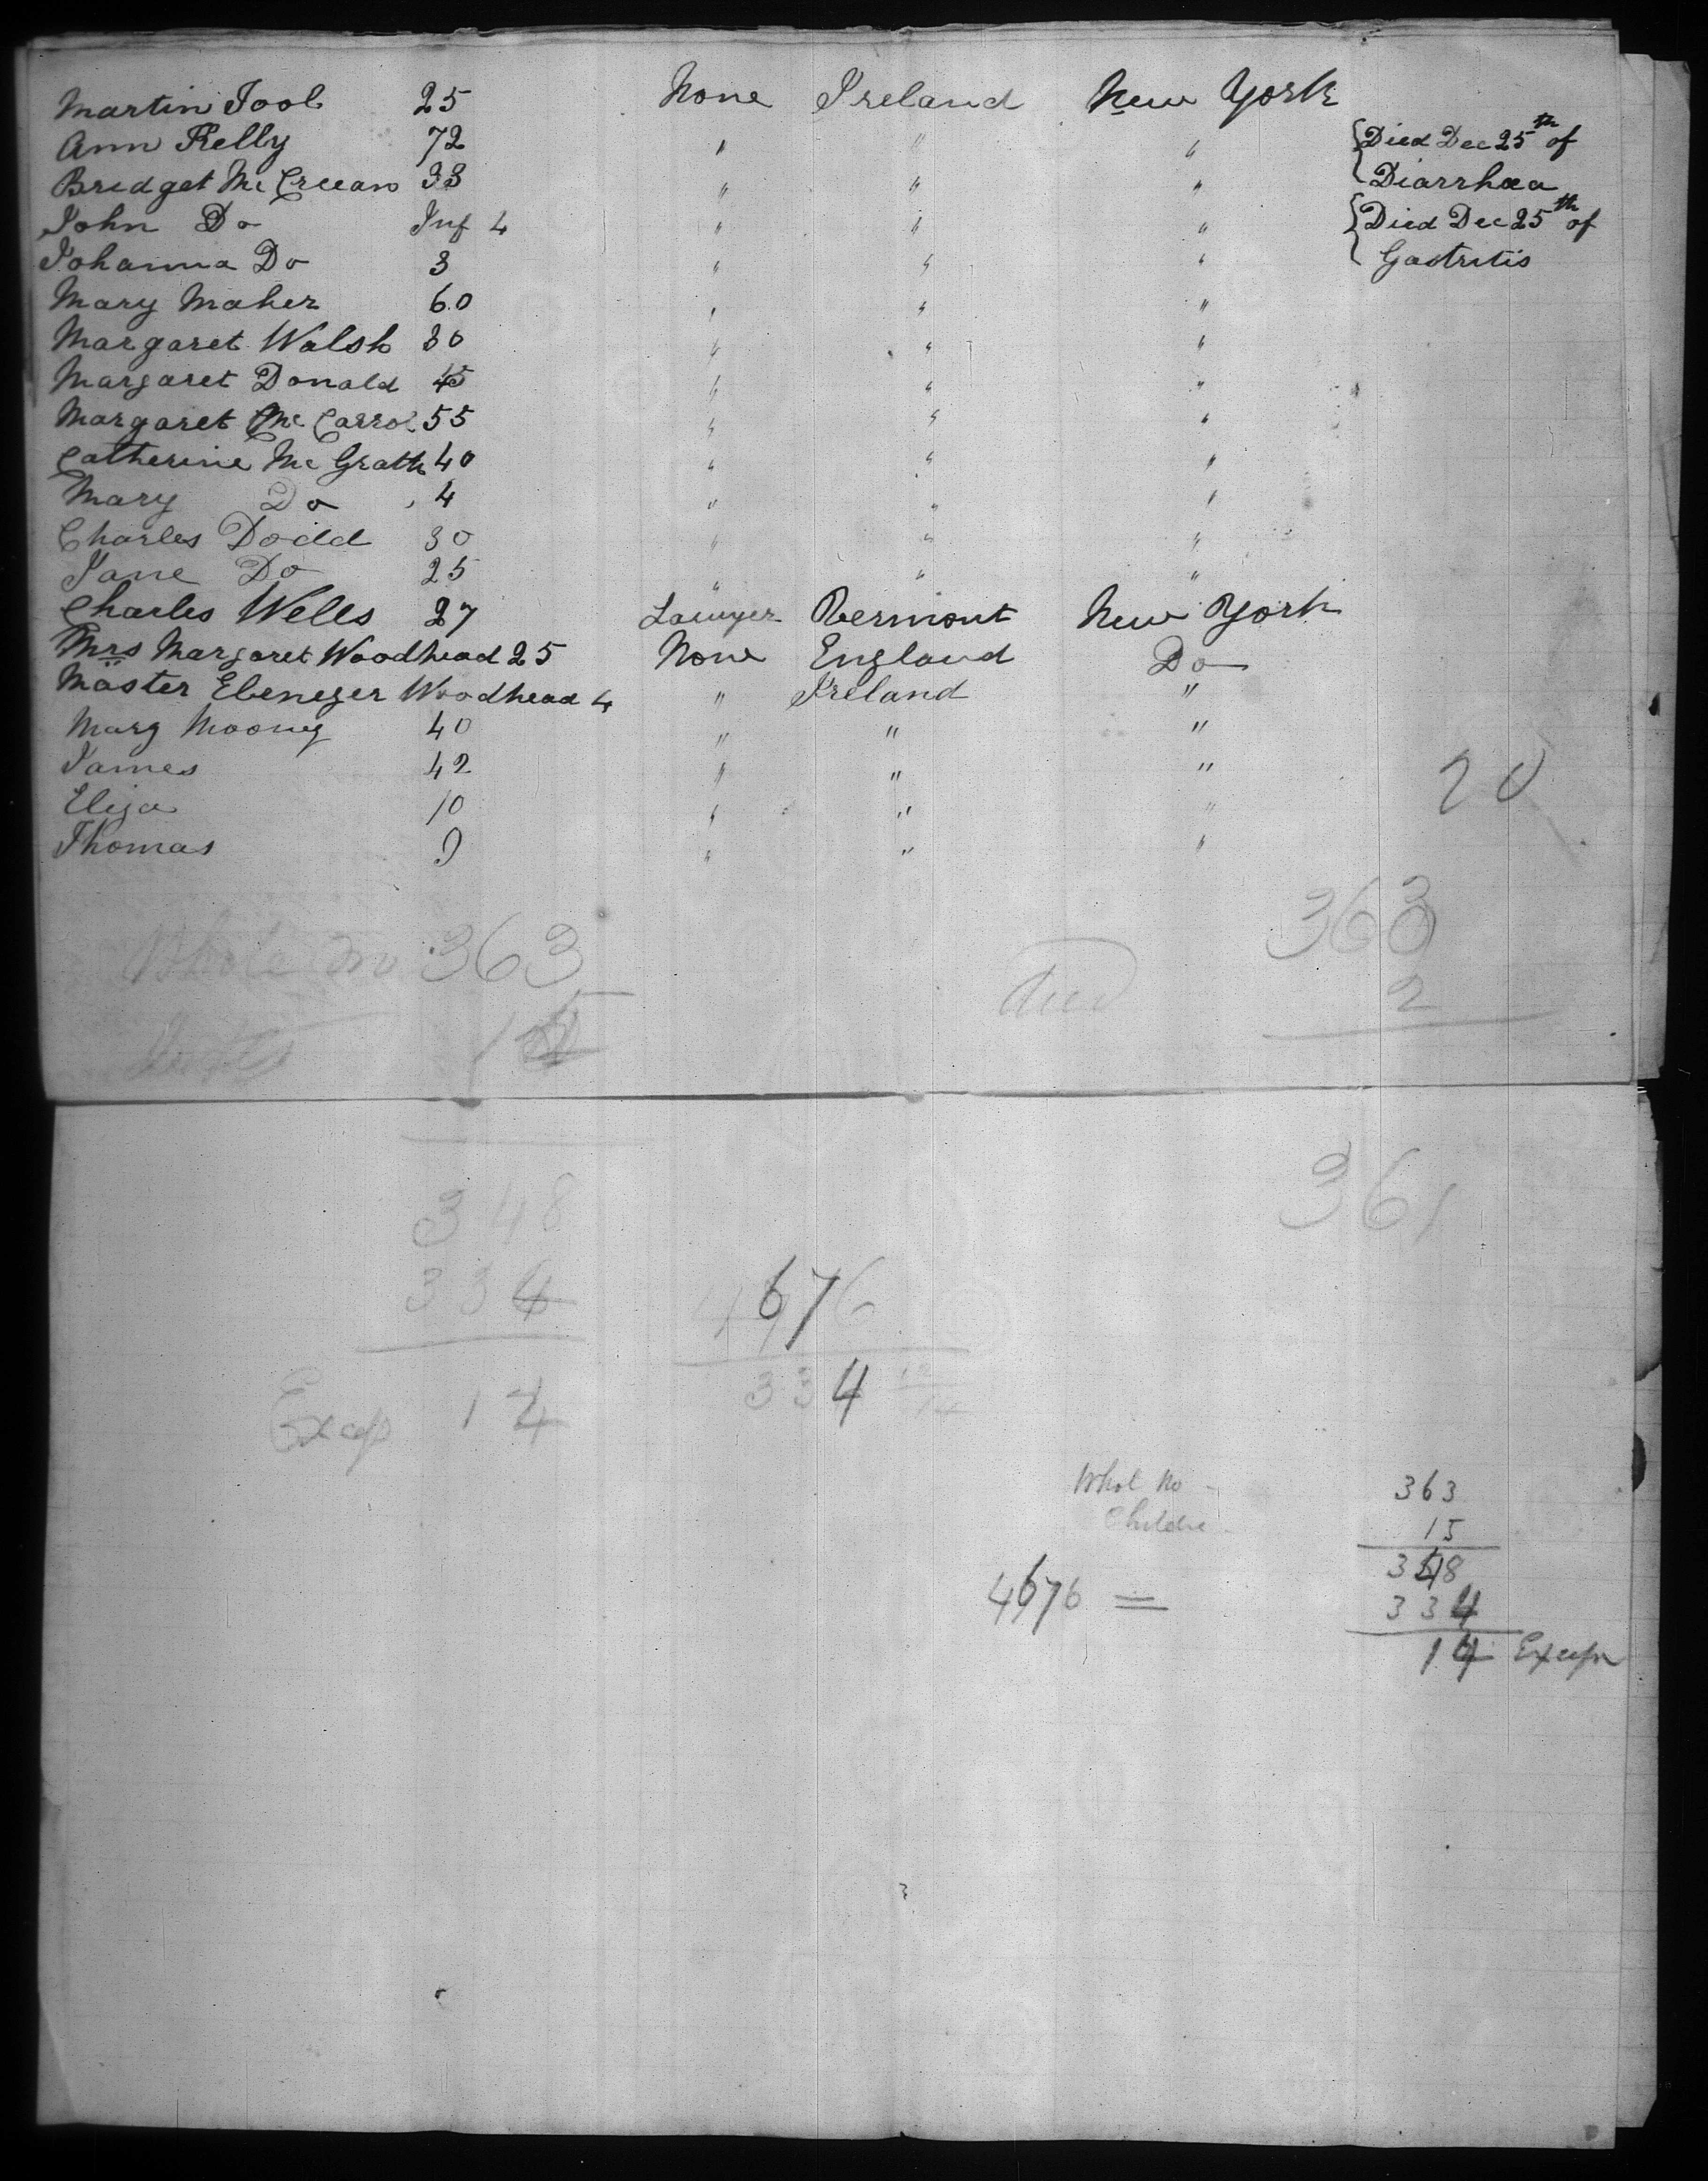 Martin Tool 25 None Ireland New York
Ann Kelly 72 " " " Died Dec 25th of
Bridget Mc Creean 33 " " " Diarrhœa
John Do Inf 4 " " " Died Dec 25th of
Johanna Do 3 " " " Gastritis
Mary Maher 60 " " "
Margaret Walsh 30 " " "
Margaret Donald 45 " " "
Margaret Mc Carrol 55 " " "
Catherine Mc Grath 40 " " "
Mary Do 4 " " "
Charles Dodd 30 " " "
Jane Do 25 " " "
Charles Wells 27 Lawyer Vermont New York
Mrs Margaret Woodhead 25 None England Do
Master Ebenezer Woodhead 4 " Ireland "
Mary Moony 40 " " "
James 42 " " " 20
Eliza 10 " " "
Thomas 9 " " "
Whole No 363 363
Died 2
15
361
348
334 4676
Excep 14 334 12/14
Whol No 363
Childre 15
348
4676 = 334
14 Excep